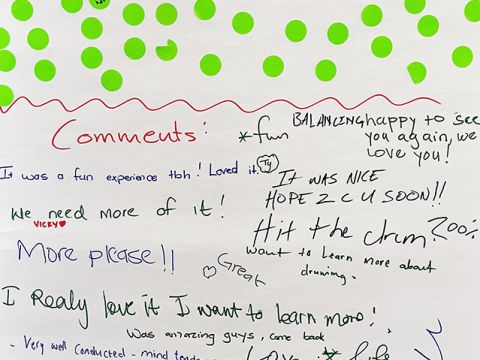 Comments:
*fun
BALANCING
happy to see
you again, we
love you!
It was a fun experience tbh! Loved it.
Ty
IT WAS NICE
HOPE 2 C U SOON!!
We need more of it!
VICKY
Hit the drum!
200%
Want to learn more about
druming.
More please!!
Great
I Realy love it I want to learn more!
Was amazing guys, come back
- Very well conducted - mind